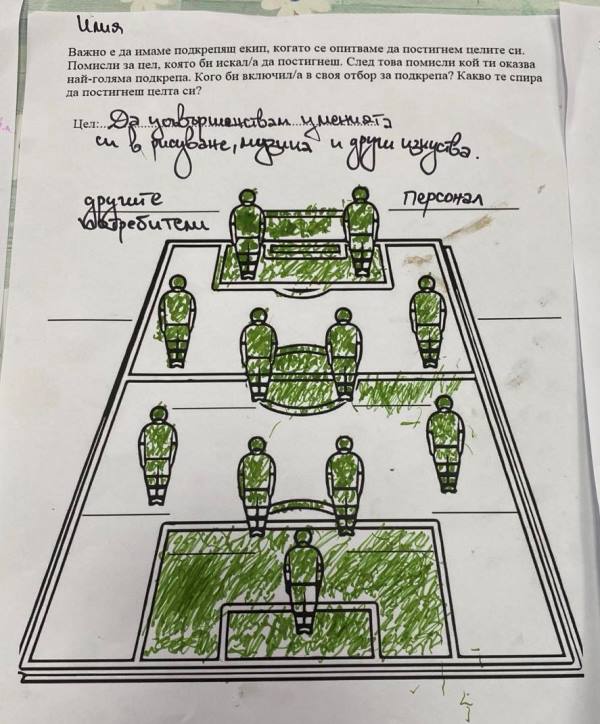 Илия
Важно е да имаме подкрепящ екип, когато се опитваме да постигнем целите си.
Помисли за цел, която би искал/а да постигнеш. След това помисли кой ти оказва
най-голяма подкрепа. Кого би включил/а в своя отбор за подкрепа? Какво те спира
да постигнеш целта си?
Цел: Да усъвършенствам уменията
си в рисуване, музика и други изкуства.
другите
потребители
Персонал